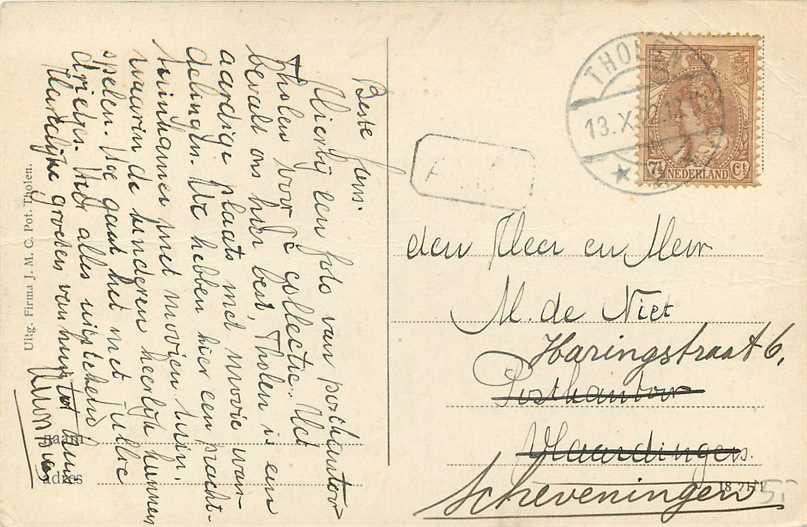 Beste fam.
Hierbij een foto van postkantoor
Tholen voor de collectie. Het
bevalt ons hier best, Tholen is een
aardige plaats met mooie wan-
delingen. We hebben hier een pracht-
tuinkamer met mooien tuin.
waarin de kinderen heerlijk kunnen
spelen. Hoe gaat het met jullie
drietjes. Hier alles uitstekend
Hartelijke groeten van huis tot huis
Uitg. Firma J. M. C. Pot. Tholen.
naam
adres
THOLEN
13.X. 12
7½ Ct
NEDERLAND
den Heer en Mevr
M. de Niet
Haringstraat 6,
Postkantoor
Vlaardingen.
Scheveningen